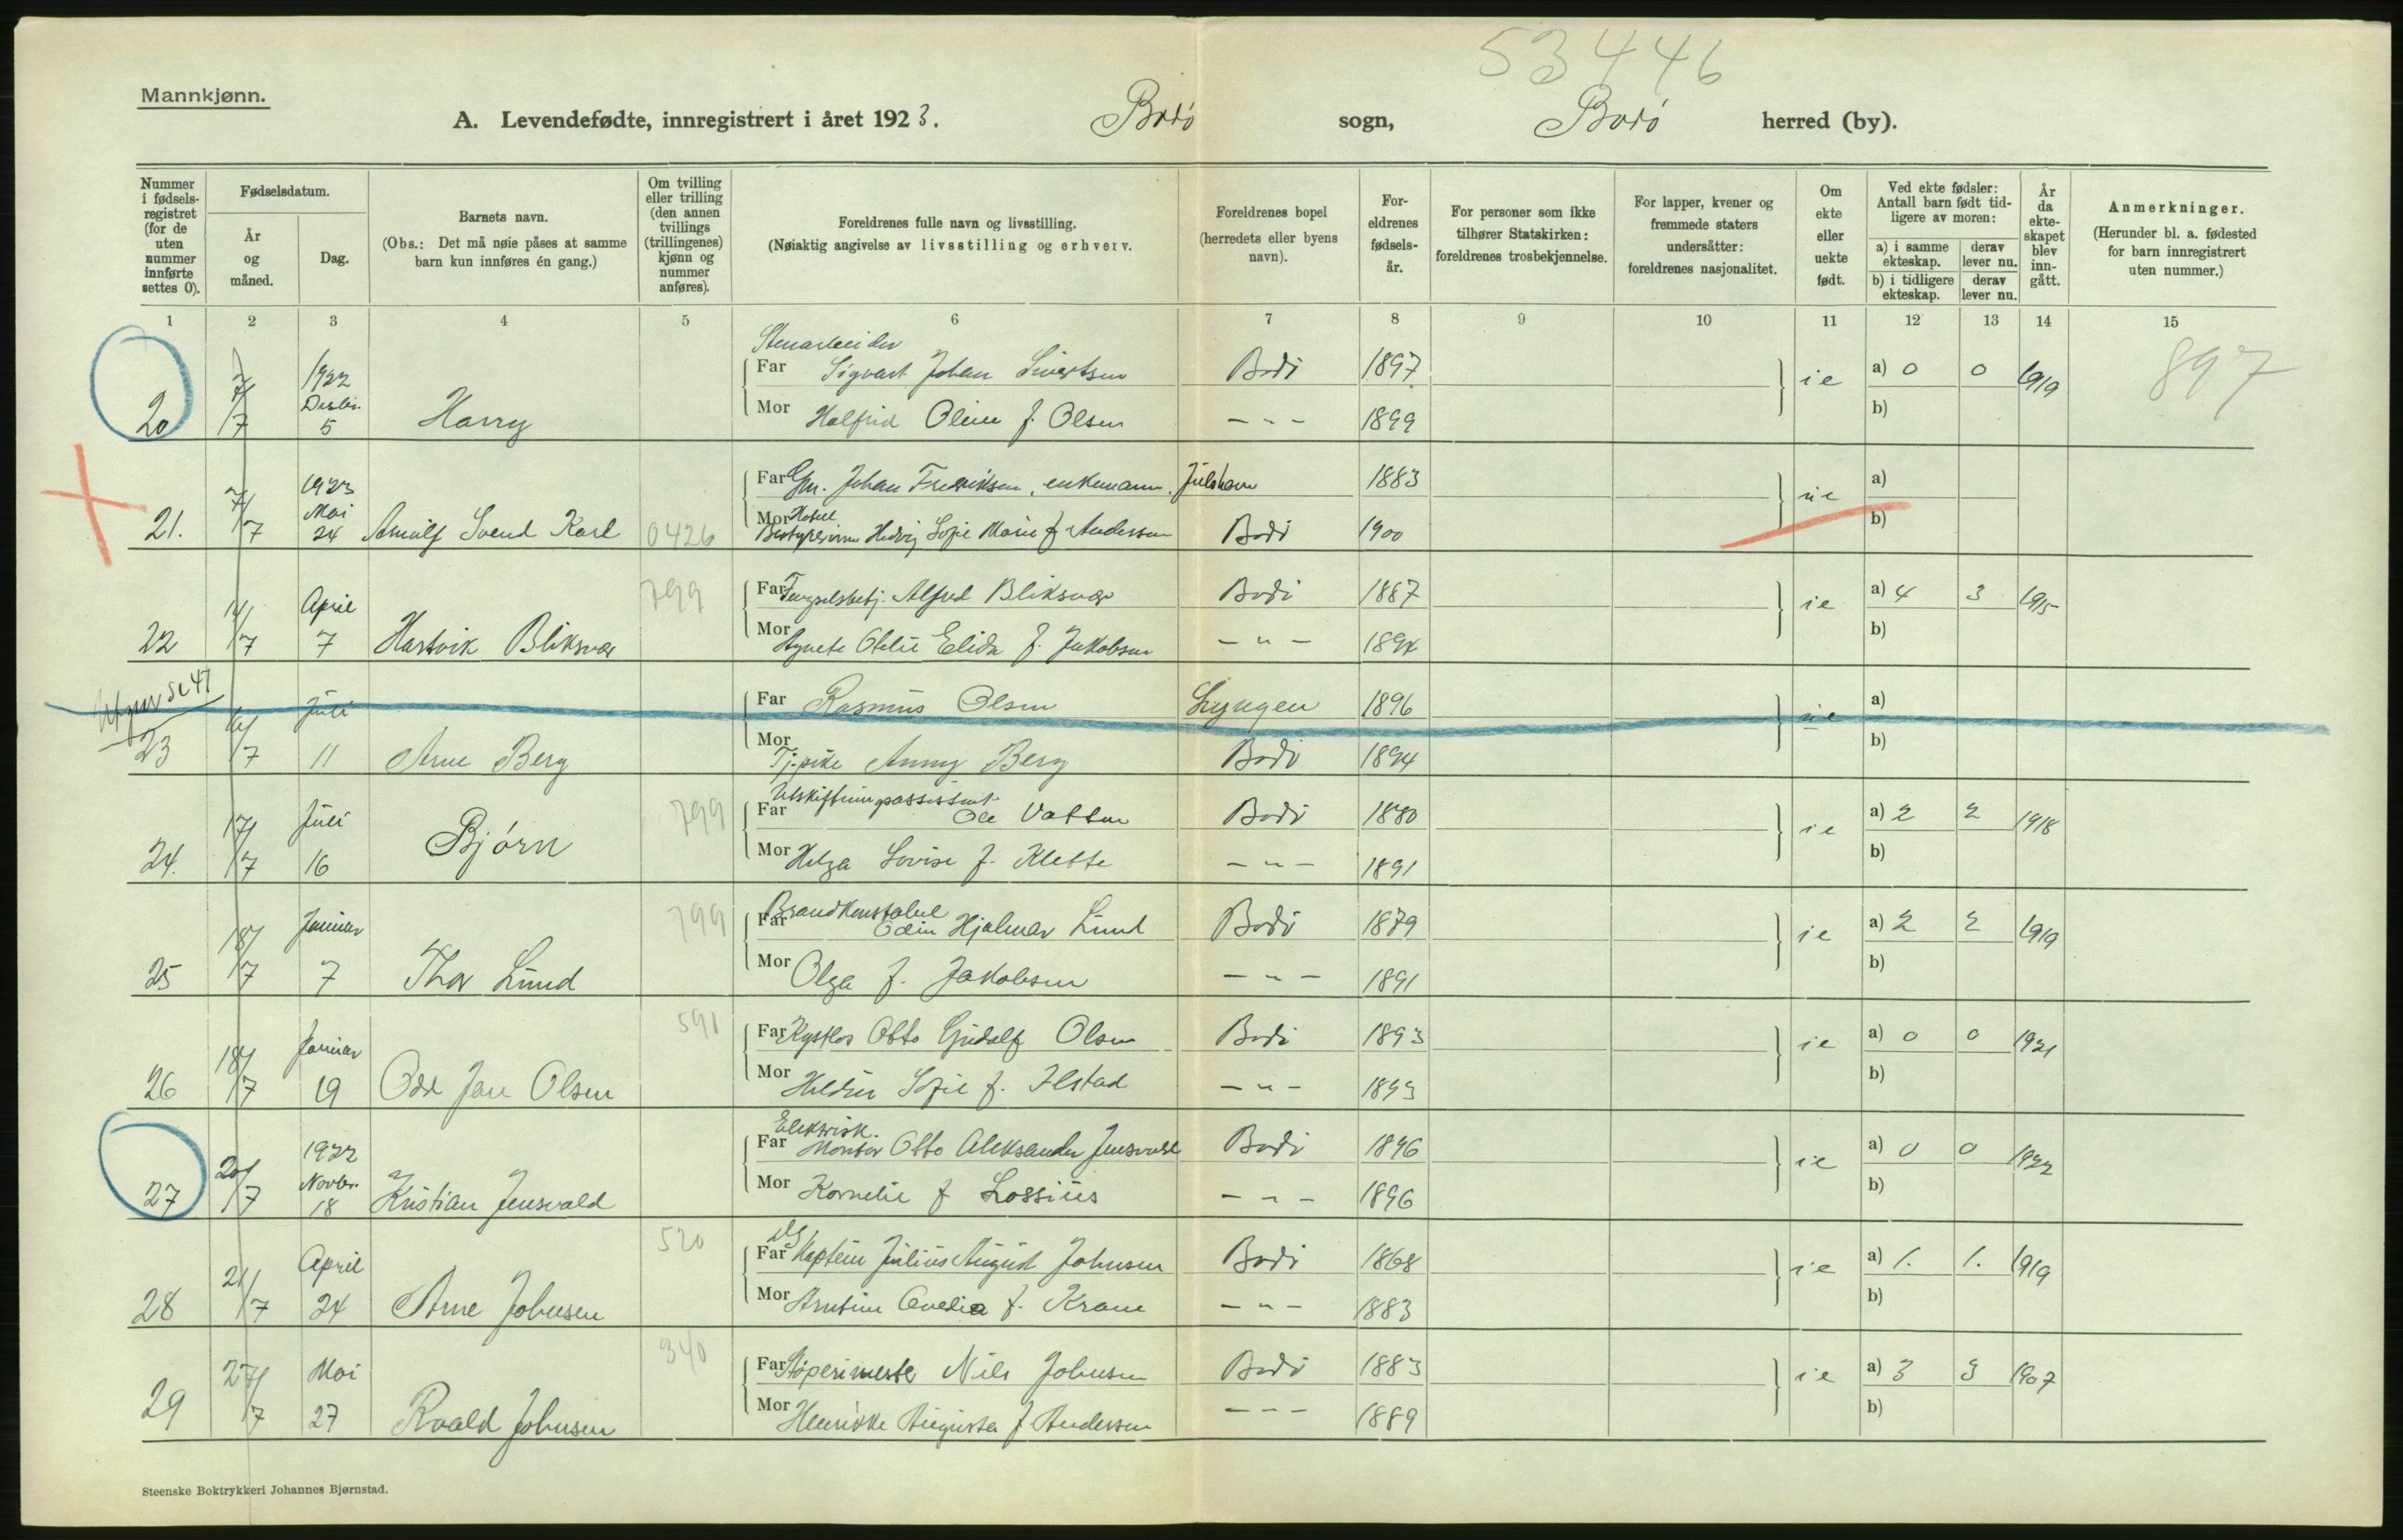 53446
Mannkjønn.
A. Levendefødte, innregistrert i året 1923. Bodø sogn, Bodø herred (by).
Nummer i fødselsregistret (for de uten nummer innførte settes 0).
Fødselsdatum.
År og måned.
Dag.
Barnets navn.
(Obs.: Det må nøie påses at samme barn kun innføres én gang.)
Om tvilling eller trilling (den annen tvillings (trillingenes) kjønn og nummer anføres).
Foreldrenes fulle navn og livsstilling.
(Nøiaktig angivelse av livsstilling og erhverv.
Foreldrenes bopel (herredets eller byens navn).
Foreldrenes fødselsår.
For personer som ikke tilhører Statskirken: foreldrenes trosbekjennelse.
For lapper, kvener og fremmede staters undersåtter: foreldrenes nasjonalitet.
Om ekte eller uekte født.
Ved ekte fødsler: Antall barn født tidligere av moren:
a) i samme ekteskap. derav lever nu.
b) i tidligere ekteskap. derav lever nu.
År da ekteskapet blev inngått.
Anmerkninger.
(Herunder bl. a. fødested for barn innregistrert uten nummer.)
1 2 3 4 5 6 7 8 9 10 11 12 13 14 15
Stenarbeider
1922 Far Sigvart Johan Sivertsen Bodø 1897 ie a) 0 0 1919 897
20 7/7 Desbr. 5 Harry Mor Halfrid Oline f. Olsen - - - 1899 b)
1923 Far Gm. Johan Fredriksen, enkemann. Julshavn 1883 ue a)
21. 7/7 Mai 24 Arnulf Svend Karl 0426 Mor Hotell Bestyrerinne Hedvig Sofie Marie f Andersen Bodø 1900 b)
April 799 Far Fengselsbetj. Alfred Bliksvær Bodø 1887 ie a) 4 3 1915
22 14/7 7 Hartvik Bliksvær Mor Agnete Otelie Elida f. Jakobsen - " - 1894 b)
Se 47
Juli Far Rasmus Olsen Lyngen 1896 ue a)
23 16/7 11 Arne Berg Mor Tj.pike Anny Berg Bodø 1894 b)
Utskiftningsassistent
Juli 799 Far Ole Vatten Bodø 1880 ie a) 2 2 1918
24. 17/7 16 Bjørn Mor Helga Lovise f. Klette - " - 1891 b)
Brandkonstabel
Januar 799 Far Odin Hjalmar Lund Bodø 1879 ie a) 2 2 1919
25 18/7 7 Thor Lund Mor Olga f. Jakobsen - " - 1891 b)
Januar 591 Far Kystlos Otto Gudolf Olsen Bodø 1893 ie a) 0 0 1921
26 18/7 19 Odd Jan Olsen Mor Sofie f. Ilstad - " - 1893 b)
Elektrisk.
1922 Far Montør Otto Aleksander Jensvold Bodø 1896 ie a) 0 0 1922
27 20/7 Novbr. 18 Kristian Jensvold Mor Kornelie f Lossius - - - 1896 b)
April 520 Far Kaptein Julius August Johnsen Bodø 1868 ie a) 1. 1. 1919
28 21/7 24 Arne Johnsen Mor Arntine f. Krane - " - 1883 b)
Mai 340 Far Støperimester Nils Johnsen Bodø 1883 ie a) 3 3 1907
29 27/7 27 Roald Johnsen Mor Henrikke Augusta f Andersen - - - 1889 b)
Steenske Boktrykkeri Johannes Bjørnstad.